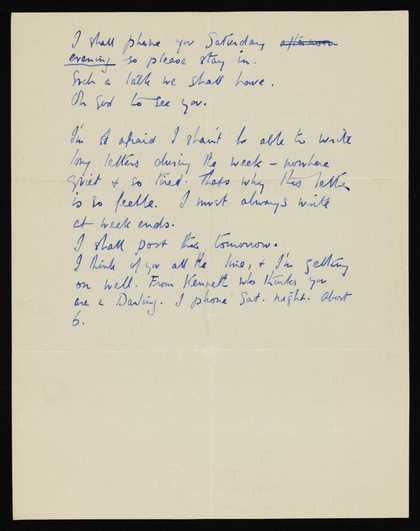 I shall phone you Saturday afternoon
evening so please stay in.
Such a talk we shall have.
Oh God to see you.
I'm so afraid I shan't be able to write
long letters during the week - nowhere
quiet + so tired. Thats why this letter
is so feeble. I must always write
at week ends.
I shall post this tomorrow.
I think of you all the time, + I'm getting
on well. From Kenneth who thinks you
are a Darling. I phone Sat. night. About
6.